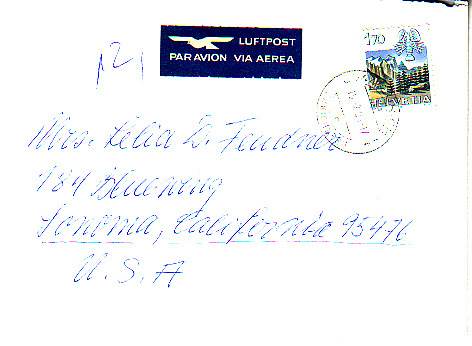 121
LUFTPOST
PAR AVION VIA AEREA
170
HELVETIA
Mrs. Lelia D. Fendner
984 Bluewing
Sonoma, California 95476
U.S.A